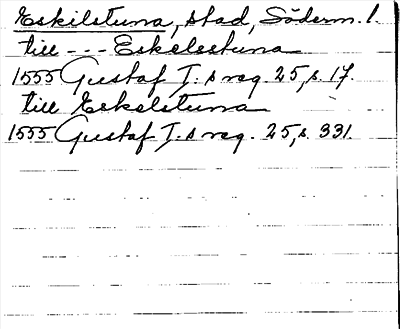 Eskilstuna, stad, Söderm. l.
till --- Eskelsstuna
1555 Gustaf I:s reg. 25, s. 17.
till Eskelstuna
1555 Gustaf I:s reg. 25, s. 331.